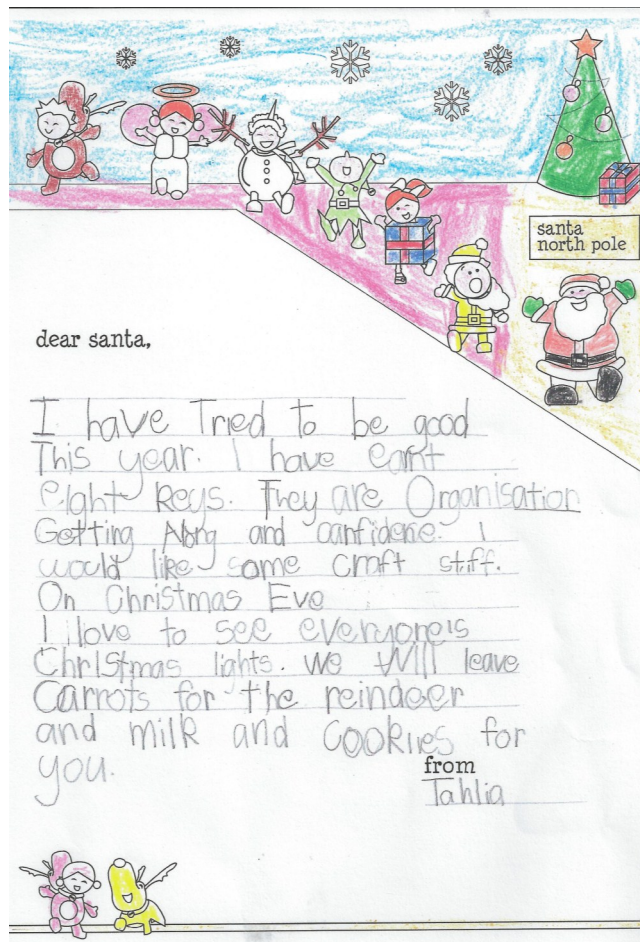 santa
north pole
dear santa,
I have Tried to be good
This year. I have earnt
eight keys. They are Organisation
Getting Along and confidence. I
would like some craft stuff.
On Christmas Eve
I love to see everyone's
Christmas lights. we will leave
Carrots for the reindeer
and milk and cookies for
you.
from
Tahlia